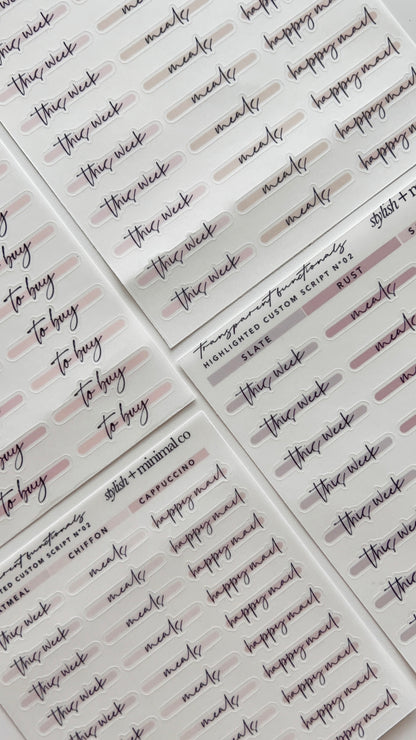 this week
meals
happy mail
this week
meals
happy mail
this week
meals
happy mail
this week
meals
happy mail
this week
meals
happy mail
this week
meals
this week
meals
this week
stylish +
to buy
to buy
to buy
to buy
to buy
to buy
to buy
to buy
to buy
transparent functionals
HIGHLIGHTED CUSTOM SCRIPT N°02
SLATE
RUST
this week
meals
this week
meals
this week
this week
this week
this week
this week
stylish + minimal co
functionals
CUSTOM SCRIPT N°02
CHIFFON
CAPPUCCINO
meals
happy mail
this week
meals
happy mail
this week
meals
happy mail
this week
meals
happy mail
this week
meals
happy mail
meals
happy mail
happy mail